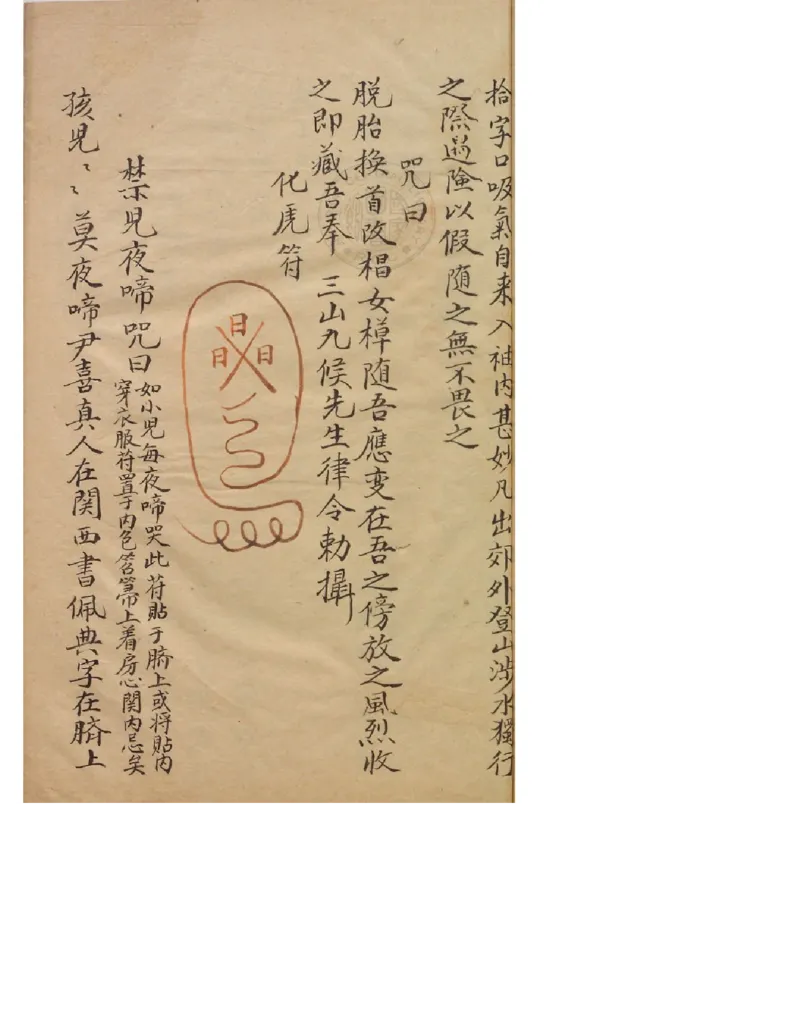 拾字口吸氣自来入袖内甚妙凡出郊外登山涉水獨行
之際遇険以假随之無不畏之
咒曰
脱胎換首改椙女樟随吾應变在吾之傍放之風烈收
之即藏吾奉 三山九候先生律令勅攝
化虎符
日
日 日
禁児夜啼咒曰
如小児每夜啼哭此符貼于臍上或将貼内
穿衣服符置于内色筶箒上着房心関内忌矣
孩児〻〻莫夜啼尹喜真人在関西書佩典字在臍上